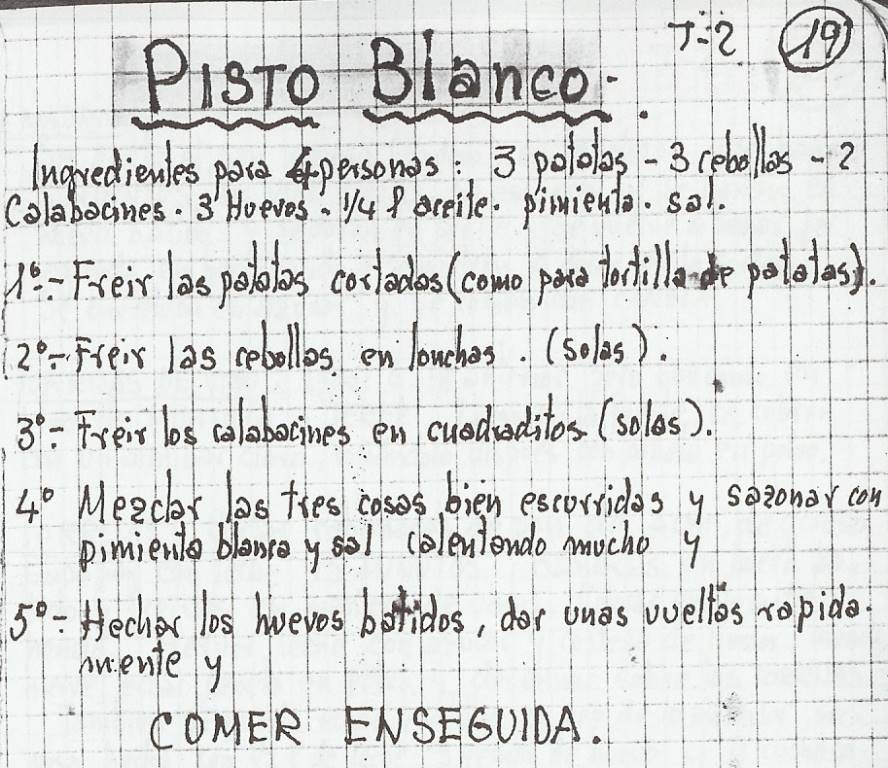 T-2 19
PISTO Blanco.
Ingredientes para 4 personas: 3 patatas - 3 cebollas - 2
Calabacines. 3 Huevos. 1/4 l aceite. pimienta. sal.
1º.- Freir las patatas cortadas (como para tortilla de patatas).
2º.- Freir las cebollas en lonchas. (solas).
3º.- Freir los calabacines en cuadraditos (solos).
4º Mezclar las tres cosas bien escurridas y sazonar con
pimienta blanca y sal calentando mucho y
5º.- Hechar los huevos batidos, dar unas vueltas rapida-
mente y
COMER ENSEGUIDA.